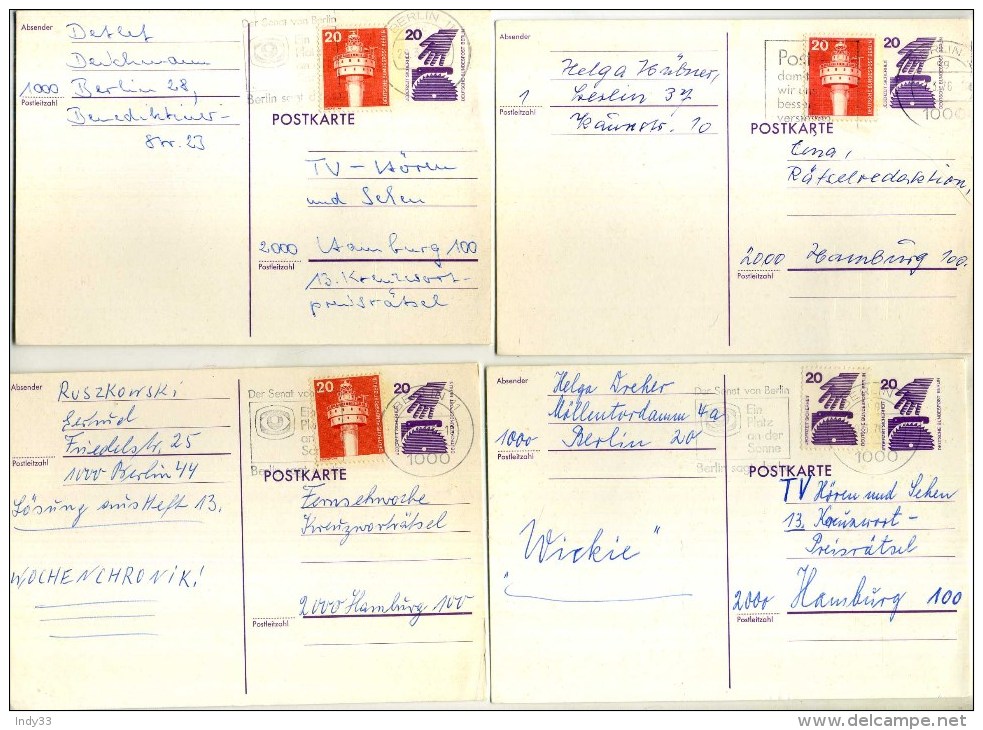 Absender
Detlef
Deichmann
1000 Berlin 28,
Postleitzahl
Benediktiner-
Str. 23
Der Senat von Berlin
20
DEUTSCHE BUNDESPOST BERLIN
20
JEDERZEIT SICHERHEIT
DEUTSCHE BUNDESPOST BERLIN
BERLIN
POSTKARTE
TV-Hören
und Sehen
2000 Hamburg 100
Postleitzahl
13. Kreuzwort-
preisrätsel
Absender
Helga Hübner,
1 Berlin 37
Postleitzahl
10
20
20
BERLIN
1000
POSTKARTE
Rätselredaktion,
2000 Hamburg 100.
Postleitzahl
Absender
RUSZKOWSKi
Gertrud
Friedelstr. 25
Postleitzahl
1000 Berlin 44
Lösung aus Heft 13.
WOCHENCHRONiK!
Der Senat von
20
20
1000
POSTKARTE
Fernsehwoche
Kreuzworträtsel
2000 Hamburg 100
Postleitzahl
Absender
Helga Dreher
Möllentordamm 4a
1000 Berlin 20
Postleitzahl
"Wickie"
Der Senat von Berlin
Ein
Platz
an der
Sonne
20
20
1000
POSTKARTE
TV Hören und Sehen
13. Kreuzwort-
Preisrätsel
2000 Hamburg 100
Postleitzahl
Indy33
delcampe.net